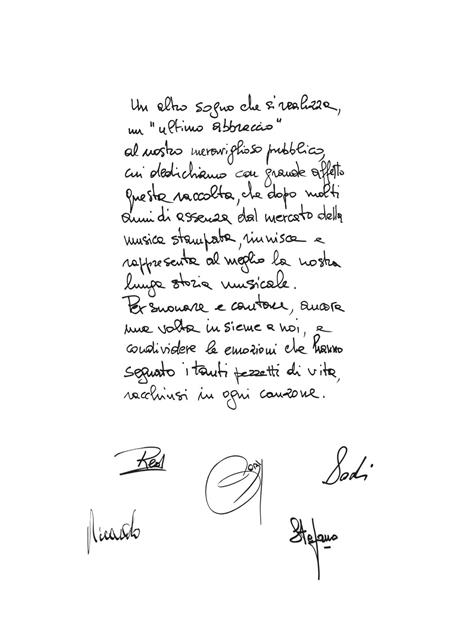 Un altro sogno che si realizza,
un "ultimo abbraccio"
al nostro meraviglioso pubblico,
cui dedichiamo con grande affetto
questa raccolta, che dopo molti
anni di assenza dal mercato della
musica stampata, riunisce e
rappresenta al meglio la nostra
lunga storia musicale.
Per suonare e cantare, ancora
una volta insieme a noi, e
condividere le emozioni che hanno
segnato i tanti pezzetti di vita,
racchiusi in ogni canzone.
Red
Dodi
Riccardo
Stefano